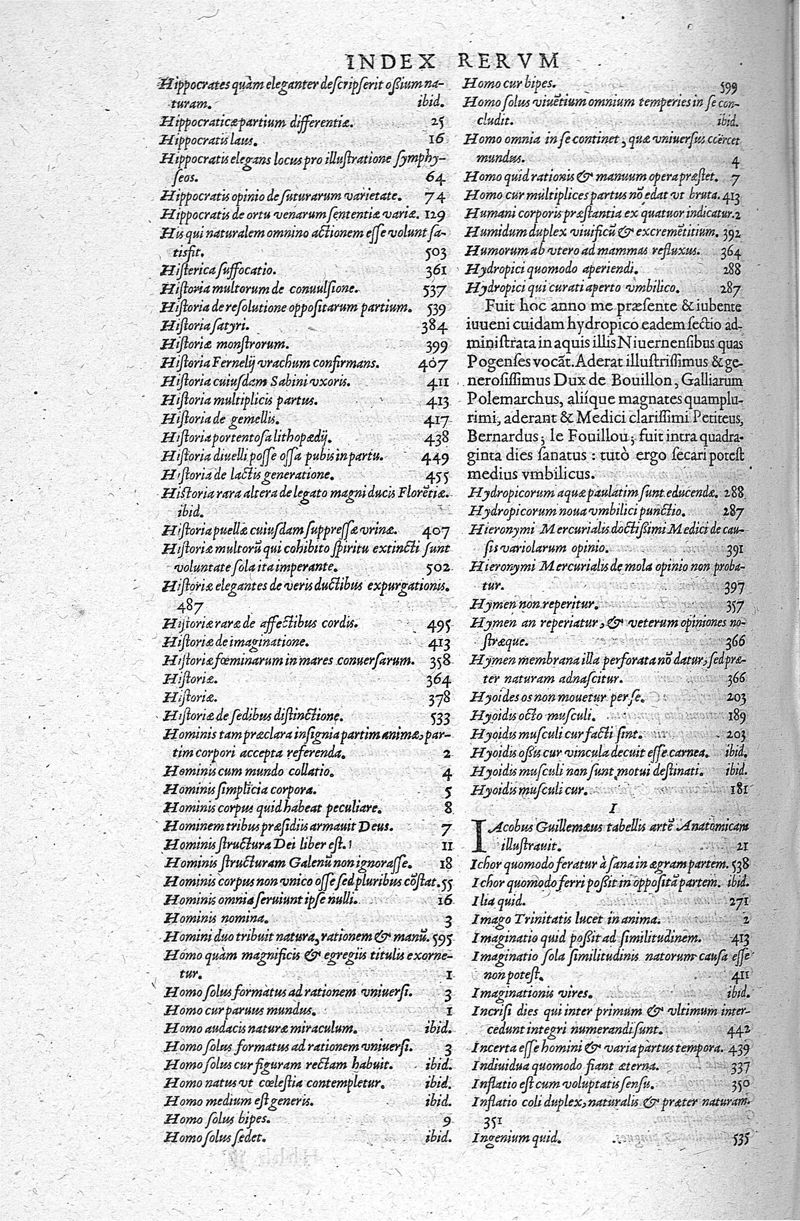 INDEX RERVM
Hippocrates quàm eleganter descripserit ossium na-
turam. ibid.
Hippocraticæ partium differentiæ. 25
Hippocratis laus. 16
Hippocratis elegans locus pro illustratione symphy-
seos. 64
Hippocratis opinio de suturarum varietate. 74
Hippocratis de ortu venarum sententiæ variæ. 129
His qui naturalem omnino actionem esse volunt sa-
tisfit. 503
Histerica suffocatio. 361
Historia multorum de conuulsione. 537
Historia de resolutione oppositarum partium. 539
Historia satyri. 384
Historiæ monstrorum. 399
Historia Fernelij vrachum confirmans. 407
Historia cuiusdam Sabini vxoris. 411
Historia multiplicis partus. 413
Historia de gemellis. 417
Historia portentosa lithopædij. 438
Historia diuelli posse ossa pubis in partu. 449
Historia de lactis generatione. 455
Historia rara altera de legato magni ducis Florẽtiæ.
ibid.
Historia puellæ cuiusdam suppressæ vrinæ. 407
Historiæ multorũ qui cohibito spiritu extincti sunt
voluntate sola ita imperante. 502
Historiæ elegantes de veris ductibus expurgationis.
487
Historiæ raræ de affectibus cordis. 495
Historiæ de imaginatione. 413
Historiæ fœminarum in mares conuersarum. 358
Historiæ. 364
Historiæ. 378
Historiæ de sedibus distinctione. 533
Hominis tam præclara insignia partim animæ, par-
tim corpori accepta referenda. 2
Hominis cum mundo collatio. 4
Hominis simplicia corpora. 5
Hominis corpus quid habeat peculiare. 8
Hominem tribus præsidiis armauit Deus. 7
Hominis structura Dei liber est. 11
Hominis structuram Galenũ non ignorasse. 18
Hominis corpus non vnico osse sed pluribus cõstat. 55
Hominis omnia seruiunt ipse nulli. 16
Hominis nomina. 3
Homini duo tribuit natura, rationem & manũ. 595
Homo quàm magnificis & egregiis titulis exorne-
tur. 1
Homo solus formatus ad rationem vniuersi. 3
Homo cur paruus mundus. 1
Homo audacis naturæ miraculum. ibid.
Homo solus formatus ad rationem vniuersi. 3
Homo solus cur figuram rectam habuit. ibid.
Homo natus vt cœlestia contempletur. ibid.
Homo medium est generis. ibid.
Homo solus bipes. 9
Homo solus sedet. ibid.
Homo cur bipes. 599
Homo solus viuẽtium omnium temperies in se con-
cludit. ibid.
Homo omnia in se continet, quæ vniuersus coërcet
mundus. 4
Homo quid rationis & manuum opera præstet. 7
Homo cur multiplices partus nõ edat vt bruta. 413
Humani corporis præstantia ex quatuor indicatur. 2
Humidum duplex viuificũ & excremẽtitium. 392
Humorum ab vtero ad mammas refluxus. 364
Hydropici quomodo aperiendi. 288
Hydropici qui curati aperto vmbilico. 287
Fuit hoc anno me præsente & iubente
iuueni cuidam hydropico eadem sectio ad-
ministrata in aquis illis Niuernensibus quas
Pogenses vocãt. Aderat illustrissimus & ge-
nerosissimus Dux de Bouillon, Galliarum
Polemarchus, aliique magnates quamplu-
rimi, aderant & Medici clarissimi Petiteus,
Bernardus, le Fouillou, fuit intra quadra-
ginta dies sanatus : tutò ergo secari potest
medius vmbilicus.
Hydropicorum aquæ paulatim sunt educendæ. 288
Hydropicorum noua vmbilici punctio. 287
Hieronymi Mercurialis doctissimi Medici de cau-
sis variolarum opinio. 391
Hieronymi Mercurialis de mola opinio non proba-
tur. 397
Hymen non reperitur. 357
Hymen an reperiatur, & veterum opiniones no-
stræque. 366
Hymen membrana illa perforata nõ datur, sed præ-
ter naturam adnascitur. 366
Hyoides os non mouetur per se. 203
Hyoidis octo musculi. 189
Hyoidis musculi cur facti sint. 203
Hyoidis ossis cur vincula decuit esse carnea. ibid.
Hyoidis musculi non sunt motui destinati. ibid.
Hyoidis musculi cur. 181
I
IAcobus Guillemæus tabellis artẽ Anatomicam
illustrauit. 21
Ichor quomodo feratur à sana in ægram partem. 538
Ichor quomodo ferri possit in oppositã partem. ibid.
Ilia quid. 271
Imago Trinitatis lucet in anima. 2
Imaginatio quid possit ad similitudinem. 413
Imaginatio sola similitudinis natorum causa esse
non potest. 411
Imaginationis vires. ibid.
Incrisi dies qui inter primum & vltimum inter-
cedunt integri numerandi sunt. 442
Incerta esse homini & varia partus tempora. 439
Indiuidua quomodo fiant æterna. 337
Inflatio est cum voluptatis sensu. 350
Inflatio coli duplex, naturalis & præter naturam.
351
Ingenium quid. 535